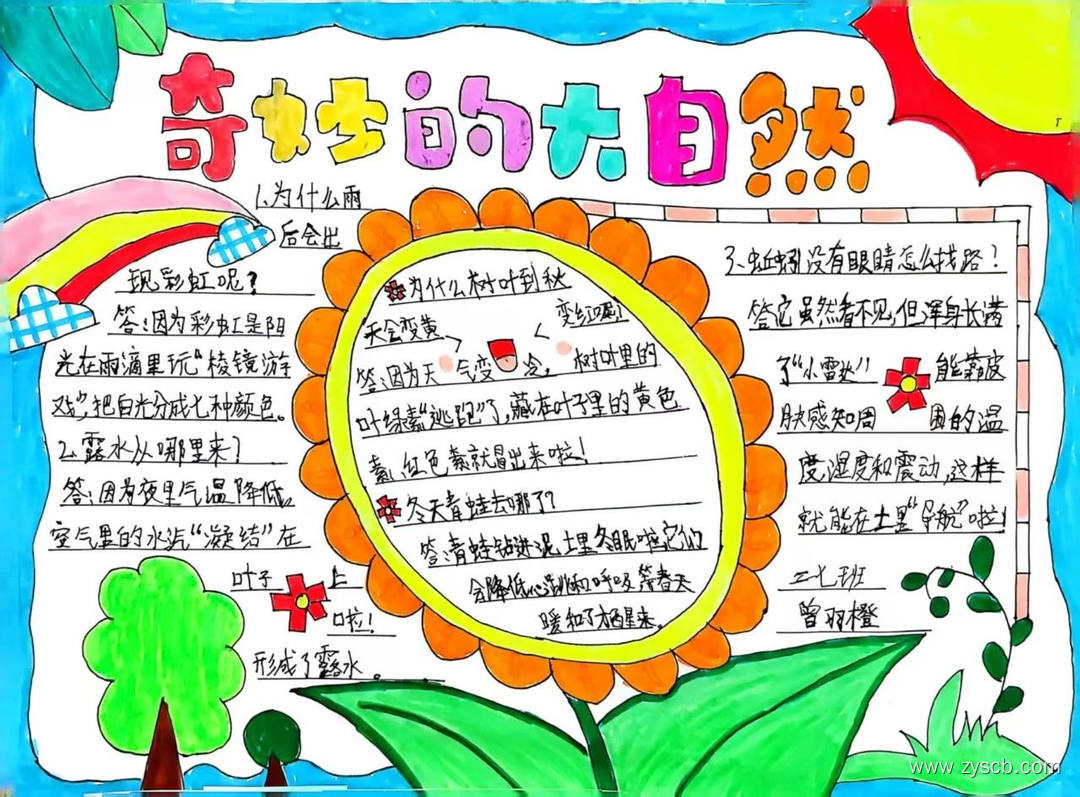 奇妙的大自然
1、为什么雨
后会出
现彩虹呢？
答：因为彩虹是阳
光在雨滴里玩“棱镜游
戏”，把白光分成七种颜色。
2、露水从哪里来？
答：因为夜里气温降低，
空气里的水汽“凝结”在
叶子上
啦！
形成了露水。
为什么树叶到秋
天会变黄
变红呢？
答：因为天气变冷，树叶里的
叶绿素“逃跑”了，藏在叶子里的黄色
素、红色素就冒出来啦！
冬天青蛙去哪了？
答：青蛙钻进泥土里冬眠啦，它们
会降低心跳和呼吸，等春天
暖和了才醒来。
3、蚯蚓没有眼睛怎么找路？
答它虽然看不见，但浑身长满
了“小雷达”能靠皮
肤感知周围的温
度、湿度和震动，这样
就能在土里“导航”啦！
二七班
曾羽橙
www.zyscb.com